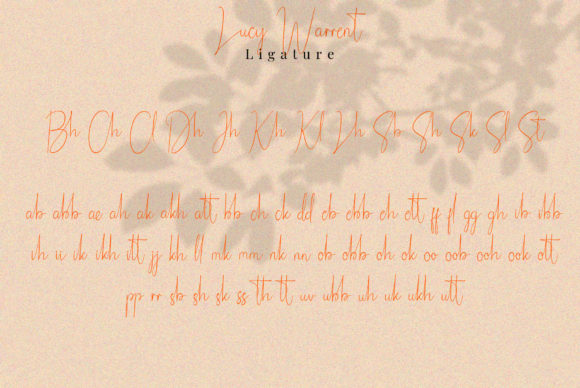 Lucy Warrent
Ligature
Bh Ch Cl Dh Jh Kh Kl Lh Sb Sh Sk Sl St
ab abb ae ah ak akh att bb ch ck dd eb ebb eh ett ff fl gg gh ib ibb
ih ii ik ikh itt jj kh ll mk mm nk nn ob obb oh ok oo oob ooh ook ott
pp rr sb sh sk ss th tt uv ubb uh uk ukh utt